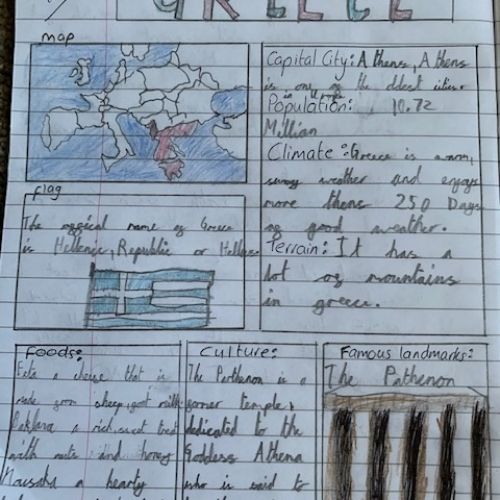 GREECE
map
Capital City: Athens, Athens
is one of the oldest cities
in the world
Population: 10.72
Million
Climate: Greece is warm,
sunny weather and enjoys
more thens 250 Days
of good weather.
Terrain: It has a
lot of mountains
in greece.
flag
The official name of Greece
is Hellenic, Republic or Hellas
Foods:
Feta a cheese that is
made from sheep, goat milk
Baklava a rich, sweet treat
with nuts and honey
Mausaka a hearty
Culture:
The Parthenon is a
former temple,
dedicated to the
Goddess Athena
who is said to
Famous landmarks:
The Pathenon